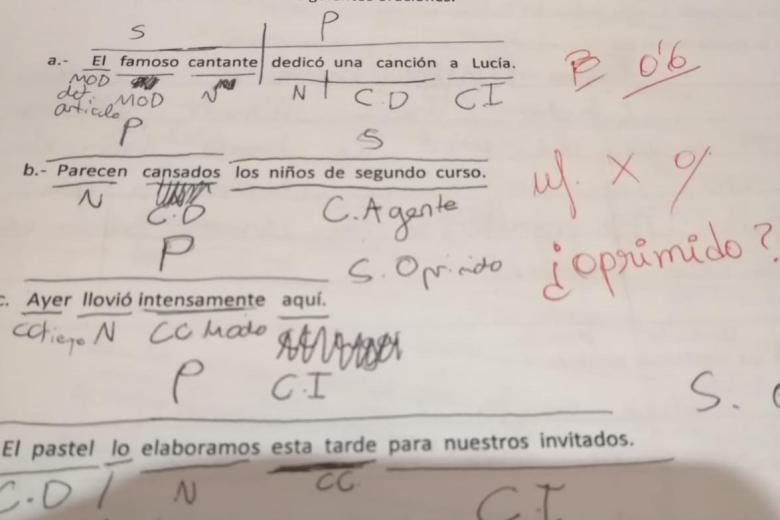 S P
a.- El famoso cantante dedicó una canción a Lucía. B 0'6
MOD MOD N N C.D CI
det.
articulo
P S
b.- Parecen cansados los niños de segundo curso. x
N C.D C.Agente
P S. ¿oprimido?
c. Ayer llovió intensamente aquí.
N CC Modo
P C.I S.
El pastel lo elaboramos esta tarde para nuestros invitados.
C.D N CC C I